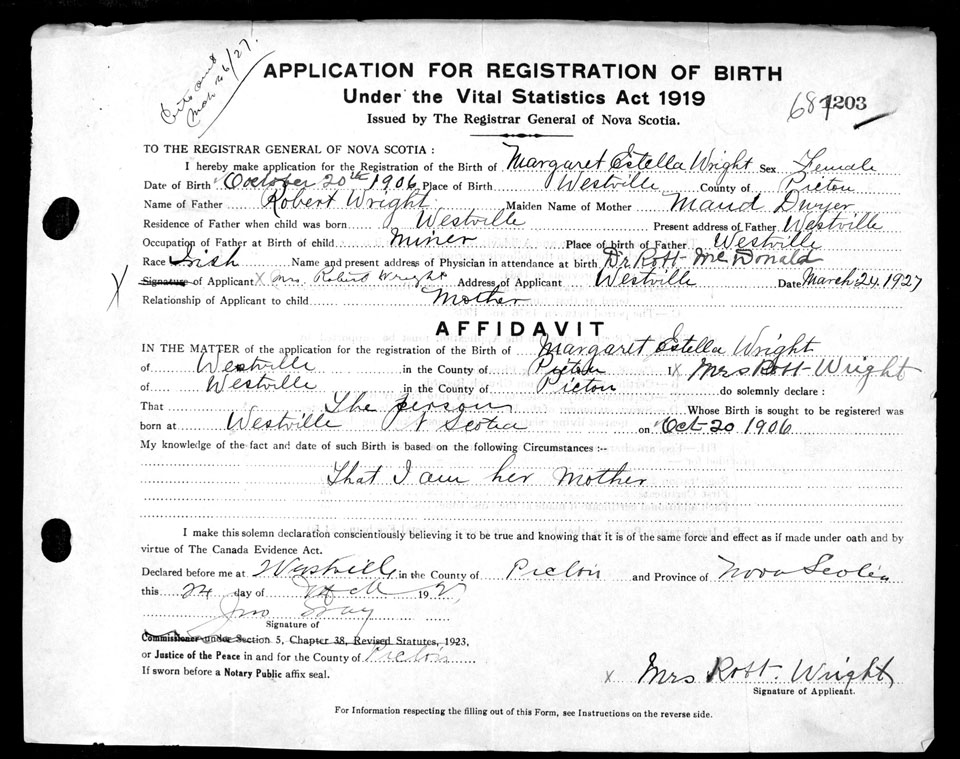 Certs and
Mch 26/27.
APPLICATION FOR REGISTRATION OF BIRTH
Under the Vital Statistics Act 1919
Issued by The Registrar General of Nova Scotia.
1203
TO THE REGISTRAR GENERAL OF NOVA SCOTIA :
I hereby make application for the Registration of the Birth of Margaret Estella Wright Sex Female
Date of Birth October 20th 1906 Place of Birth Westville County of Picton
Name of Father Robert Wright Maiden Name of Mother Maud Dwyer
Residence of Father when child was born Westville Present address of Father Westville
Occupation of Father at Birth of child miner Place of birth of Father Westville
Race Irish Name and present address of Physician in attendance at birth Dr Robt McDonald
Signature of Applicant x Mrs. Robert Wright Address of Applicant Westville Date March 24. 1927
Relationship of Applicant to child Mother
X
AFFIDAVIT
IN THE MATTER of the application for the registration of the Birth of Margaret Estella Wright
of Westville in the County of Picton I x Mrs Robt Wright
of Westville in the County of Picton do solemnly declare :
That The person Whose Birth is sought to be registered was
born at Westville N Scotia on Oct 20 1906
My knowledge of the fact and date of such Birth is based on the following Circumstances :--
That I am her Mother
I make this solemn declaration conscientiously believing it to be true and knowing that it is of the same force and effect as if made under oath and by
virtue of The Canada Evidence Act.
Declared before me at Westville in the County of Picton and Province of Nova Scotia
this 24 day of Mch 192
Jno Gray
Signature of
Commissioner under Section 5, Chapter 38, Revised Statutes, 1923,
or Justice of the Peace in and for the County of Picton
If sworn before a Notary Public affix seal.
x Mrs Robt. Wright
Signature of Applicant.
For Information respecting the filling out of this Form, see Instructions on the reverse side.